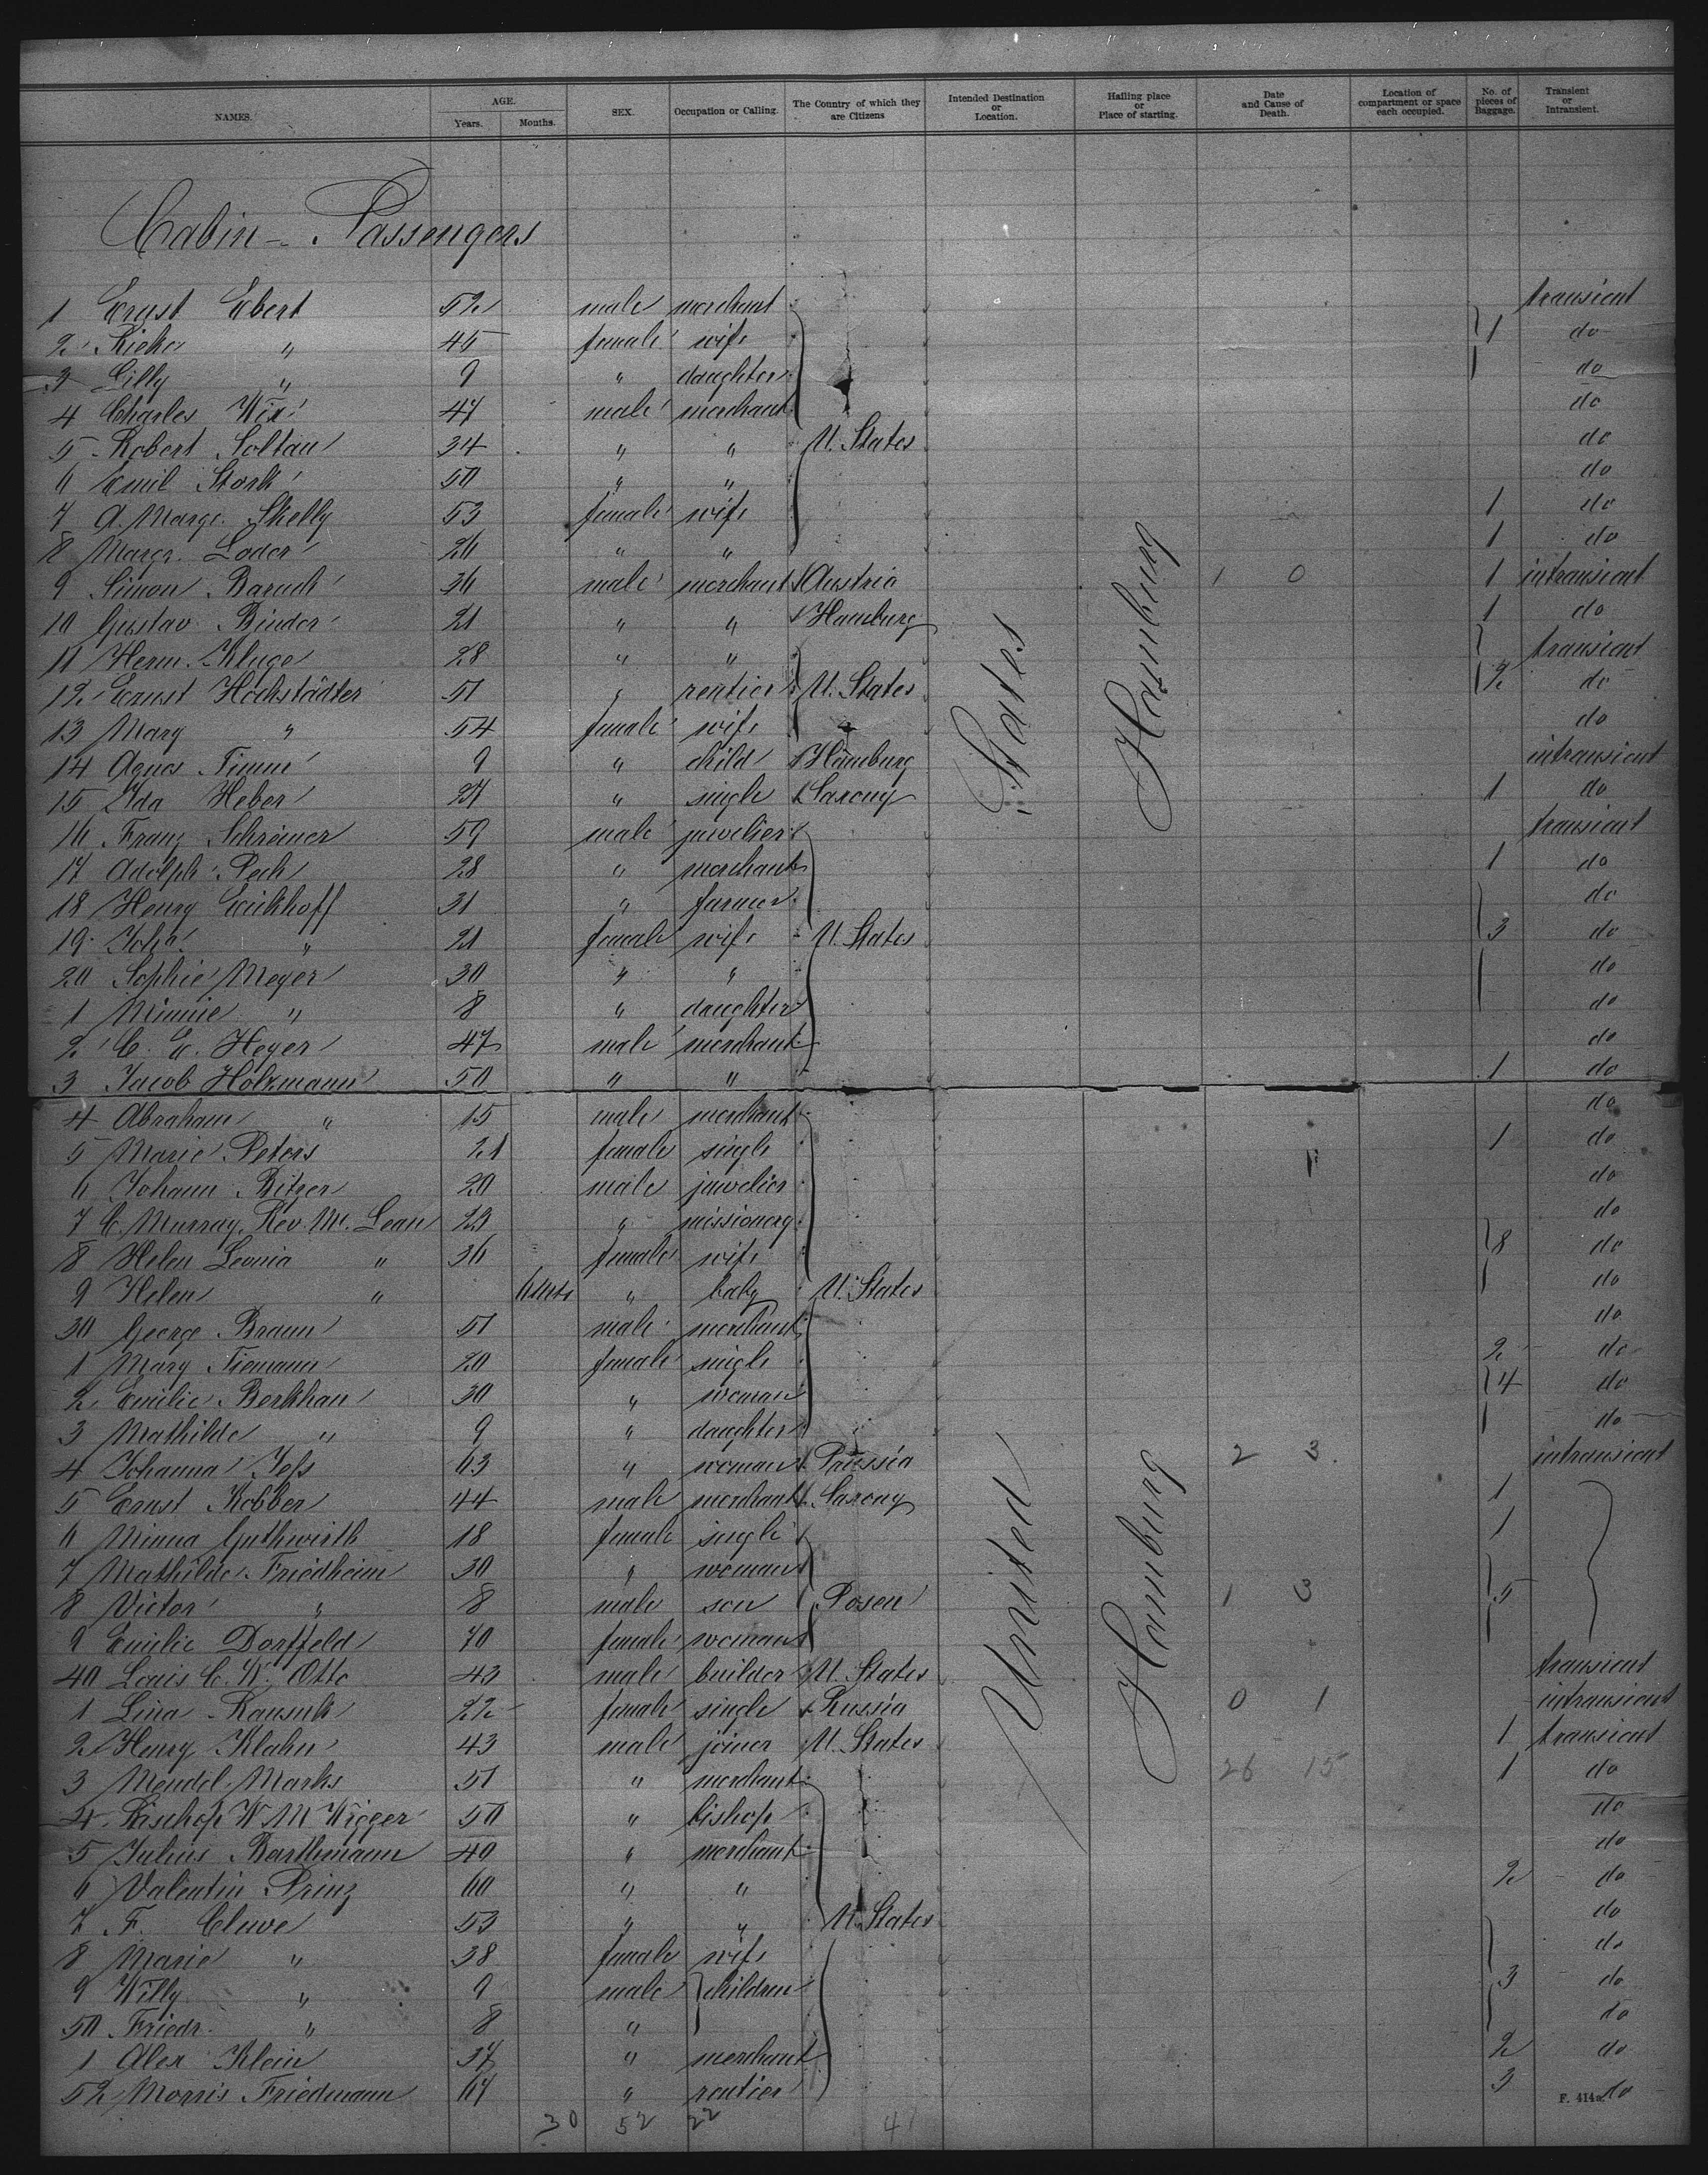 NAMES. AGE. Years. Months. SEX. Occupation or Calling. The Country of which they are Citizens Intended Destination or Location. Hailing place or Place of starting. Date and Cause of Death. Location of compartment or space each occupied. No. of pieces of Baggage. Transient or Intransient.
Cabin - Passengers
1 Ernst Ebert 52 male merchant transient
2 Rieke " 45 female wife 1 do
3 Lilly " 9 " daughter do
4 Charles Wix 47 male merchant do
5 Robert Soltau 34 " " U. States do
6 Emil Stork 50 " " do
7 A. Marge. Skelly 53 female wife 1 do
8 Margr. Loder 26 " " 1 do
9 Simon Baruch 36 male merchant Austria 1 0 1 intransient
10 Gustav Binder 21 " " Hamburg 1 do
11 Herm. Kluge 28 " " transient
12 Ernst Hochstädter 51 " rentier U. States 2 do
13 Mary " 54 female wife do
14 Agnes Timm 9 " child Hamburg intransient
15 Ida Heber 27 " single Saxony 1 do
16 Franz Schreiner 59 male juwelier transient
17 Adolph Pech 28 " merchant 1 do
18 Henry Eickhoff 31 " farmer do
19 Joha. " 21 female wife U. States 3 do
20 Sophie Meyer 30 " " do
1 Minnie " 8 " daughter do
2 C. E. Heyer 47 male merchant do
3 Jacob Holzmann 50 " " 1 do
4 Abraham " 15 male merchant do
5 Marie Peters 21 female single 1 do
6 Johann Bitzer 20 male juwelier do
7 C. Murray, Rev. Mc. Lean 29 " missionery do
8 Helen Leonia " 36 female wife 8 do
9 Helen " 6 mts " baby U. States do
30 George Braun 51 male merchant do
1 Mary Tiemann 20 female single 2 do
2 Emilie Berkhan 30 " woman 4 do
3 Mathilde " 9 " daughter do
4 Johanna Jess 63 " woman Prussia 2 3 intransient
5 Ernst Kobber 44 male merchant Saxony 1
6 Minna Guthwirth 18 female single 1
7 Mathilde Friedheim 30 " woman
8 Victor " 8 male son Posen 1 3 5
9 Emilie Dorffeld 70 female woman
40 Louis C. W. Otto 43 male builder U. States transient
1 Lina 22 female single Russia 0 1 intransient
2 Henry Klahn 43 male joiner U. States 1 transient
3 Mendel Marks 51 " merchant 26 15 1 do
4 Bischop W M Wigger 50 " bishop do
5 Julius Barthmann 40 " merchant do
6 Valentin Prinz 60 " " 2 do
7 F. Cluve 53 " " U. States do
8 Marie " 38 female wife do
9 Willy " 9 male children 3 do
50 Friedr. " 8 " do
1 Alex Klein 37 " merchant 2 do
52 Morris Friedmann 67 " rentier 3 do
United States
Hamburg
Hamburg
F. 414a.
30 52 22 41